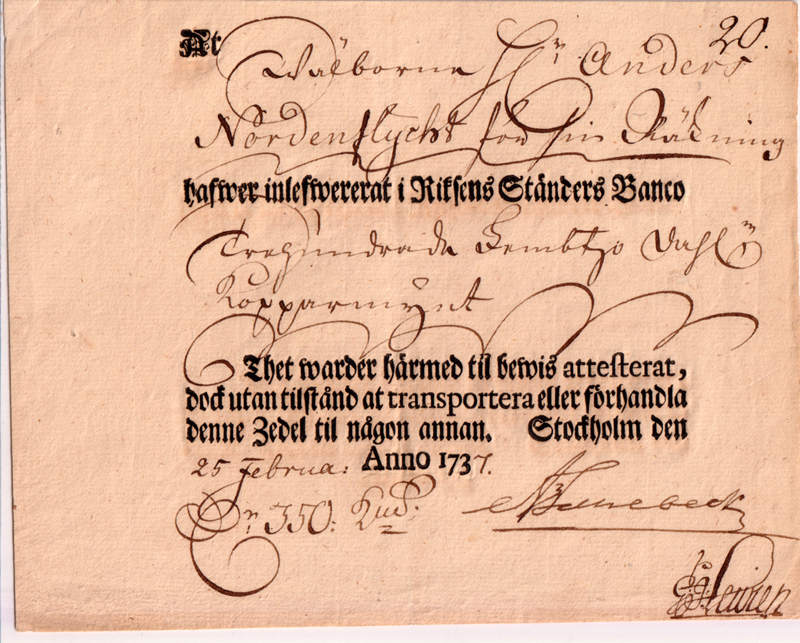 20.
At Wälborne H:r Anders
Nordenflycht för sin Räkning
hafwer inlefwererat i Riksens Ständers Banco
Trehundrade Femtijo Dahl:r
Kopparmÿnt
Thet warder härmed til bewis attesterat,
dock utan tilstånd at transportera eller förhandla
denne Zedel til någon annan. Stockholm den
25 Februa: Anno 1737.
D:r 350: Km:t